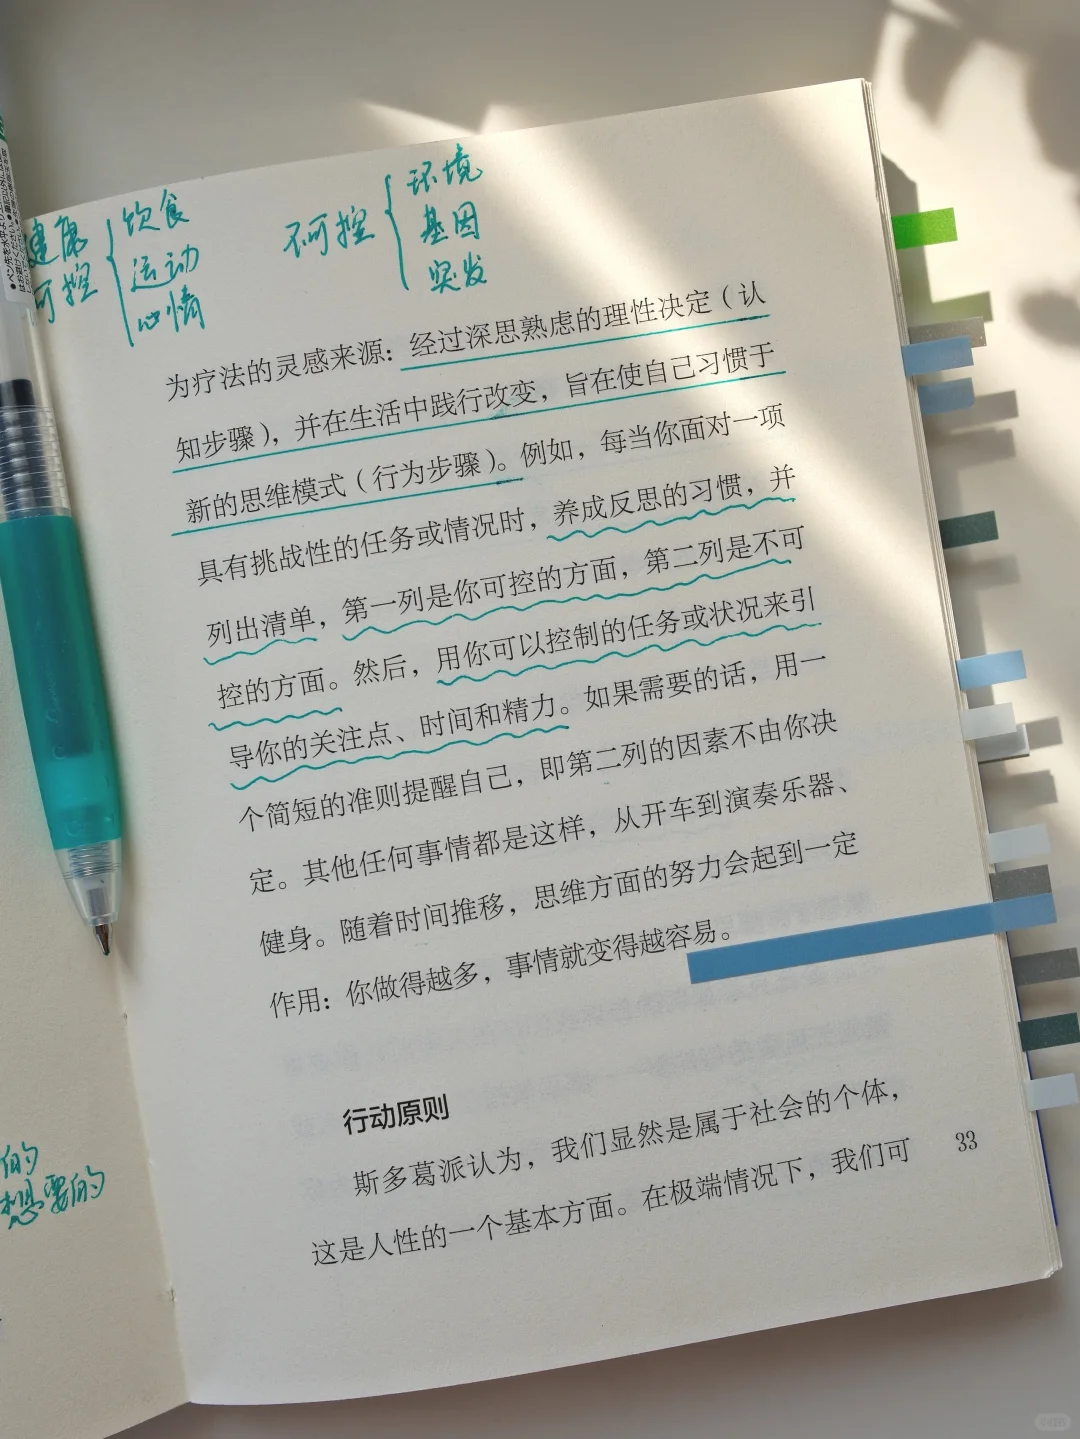 健康
可控
饮食
运动
心情
不可控
环境
基因
突发
为疗法的灵感来源：经过深思熟虑的理性决定（认
知步骤），并在生活中践行改变，旨在使自己习惯于
新的思维模式（行为步骤）。例如，每当你面对一项
具有挑战性的任务或情况时，养成反思的习惯，并
列出清单，第一列是你可控的方面，第二列是不可
控的方面。然后，用你可以控制的任务或状况来引
导你的关注点、时间和精力。如果需要的话，用一
个简短的准则提醒自己，即第二列的因素不由你决
定。其他任何事情都是这样，从开车到演奏乐器、
健身。随着时间推移，思维方面的努力会起到一定
作用：你做得越多，事情就变得越容易。
行动原则
斯多葛派认为，我们显然是属于社会的个体，
这是人性的一个基本方面。在极端情况下，我们可
33
的
想要的